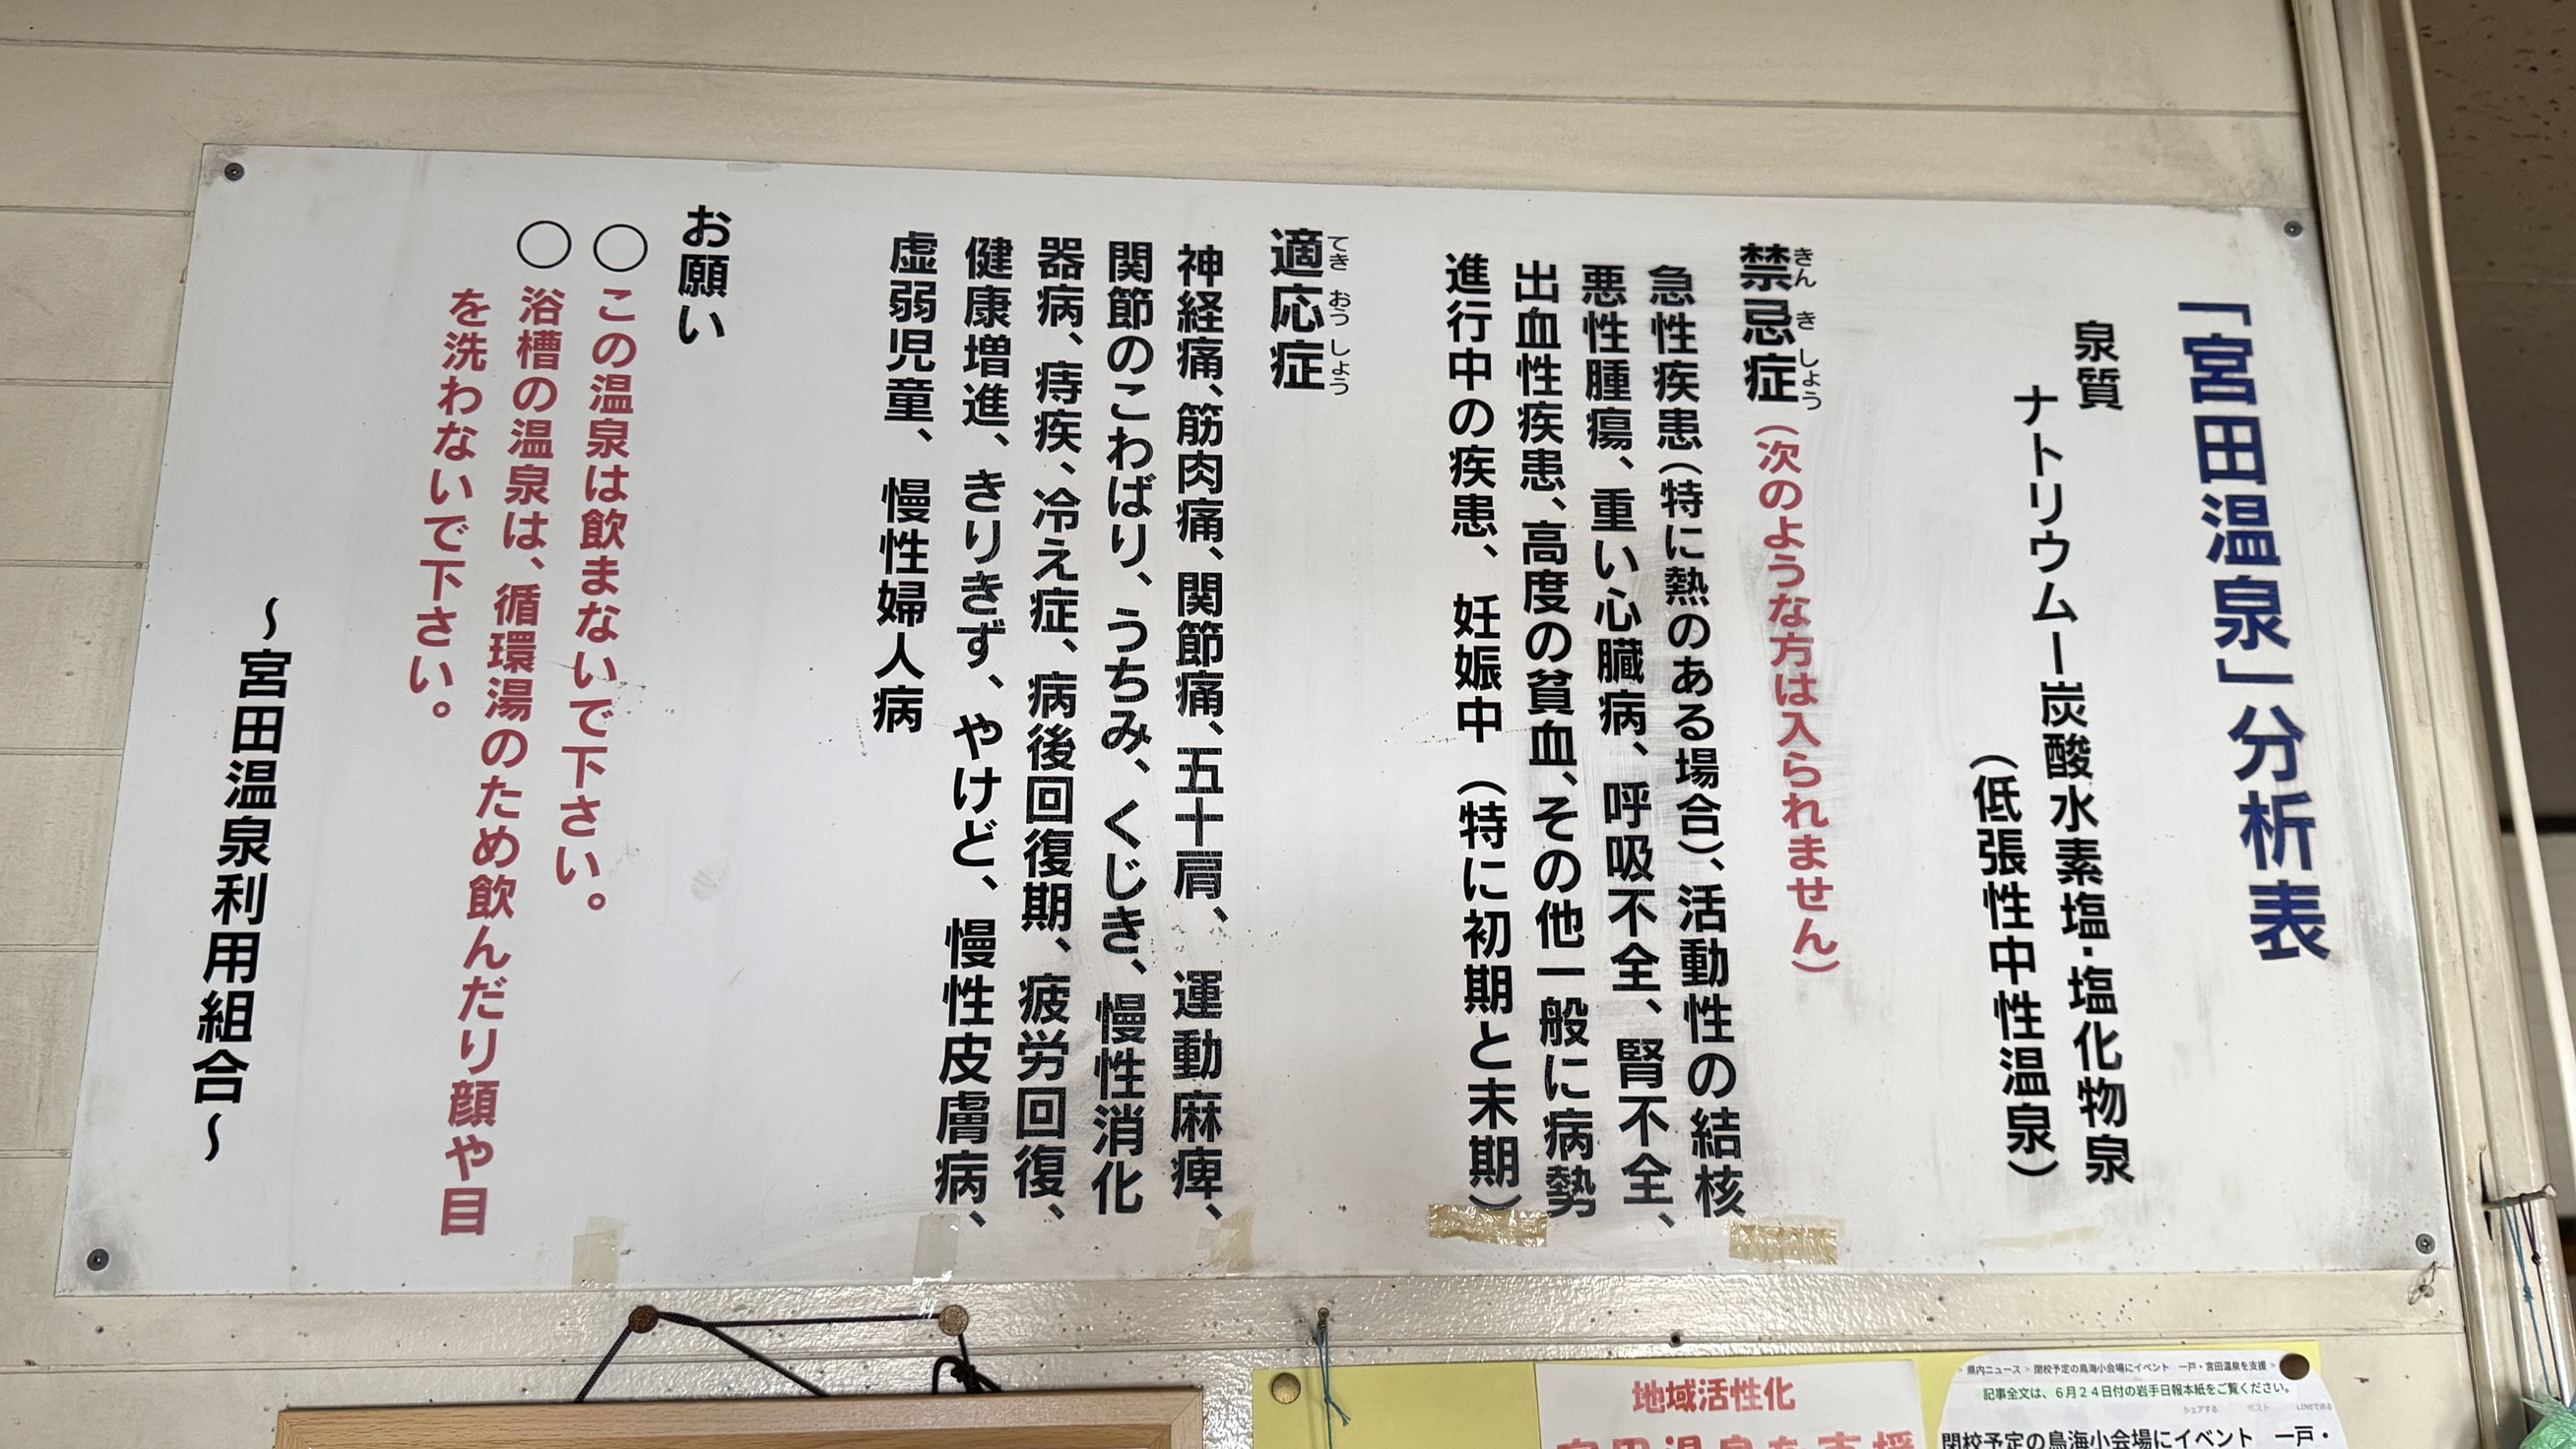 「宮田温泉」分析表
泉質
ナトリウムー炭酸水素塩・塩化物泉
（低張性中性温泉）
禁忌症（次のような方は入られません）
きん き しょう
急性疾患（特に熱のある場合）、活動性の結核
悪性腫瘍、重い心臓病、呼吸不全、腎不全、
出血性疾患、高度の貧血、その他一般に病勢
進行中の疾患、妊娠中（特に初期と末期）
適応症
てき おう しょう
神経痛、筋肉痛、関節痛、五十肩、運動麻痺、
関節のこわばり、うちみ、くじき、慢性消化
器病、痔疾、冷え症、病後回復期、疲労回復、
健康増進、きりきず、やけど、慢性皮膚病、
虚弱児童、慢性婦人病
お願い
○この温泉は飲まないで下さい。
○浴槽の温泉は、循環湯のため飲んだり顔や目
を洗わないで下さい。
～宮田温泉利用組合～
地域活性化
宮田温泉を支援
> 県内ニュース > 閉校予定の鳥海小会場にイベント 一戸・宮田温泉を支援 >
記事全文は、6月24日付の岩手日報本紙をご覧ください。
シェアする ポスト LINEで送る
閉校予定の鳥海小会場にイベント 一戸・